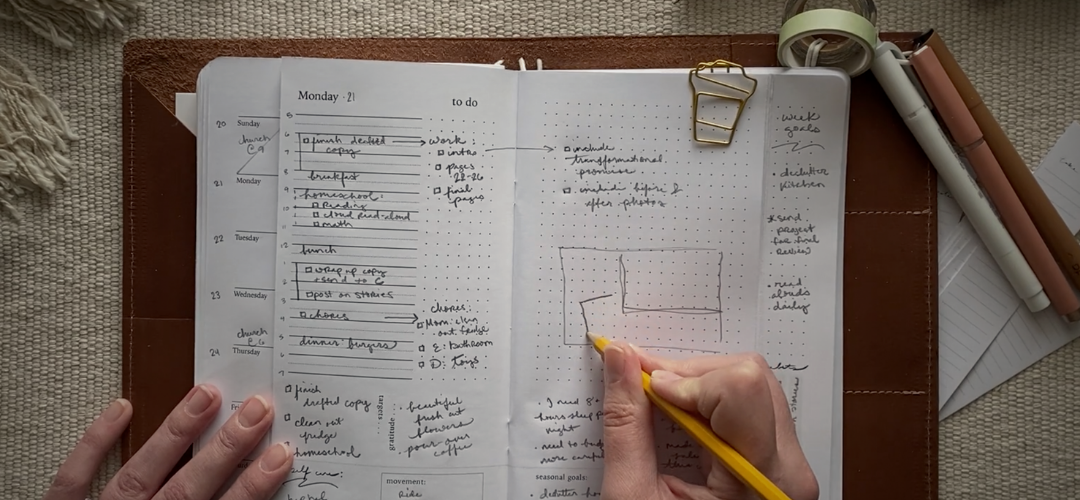 20 Sunday
church
@ 9
21
Monday
22
Tuesday
23
Wednesday
church
@ 6
24
Thursday
Monday · 21
to do
5
6
finish drafted
copy
7
8
breakfast
9
homeschool:
10
Reading
cloud read-aloud
11
math
12
lunch
wrap up copy
+ send to G
post on stories
chores
dinner: burgers
work:
intro
pages
22-26
final
pages
chores:
Mom: clean
out fridge
E: Bathroom
D: Toys
finish
drafted copy
clean out
fridge
homeschool
targets
gratitude
beautiful
fresh cut
flowers
pour-over
coffee
movement:
Ride
include
transformational
promise
include before &
after photos
I need 8
hours sleep
night
need to
more
made
seasonal goals:
declutter
week
goals
declutter
kitchen
send
project
for final
review
read
alouds
daily